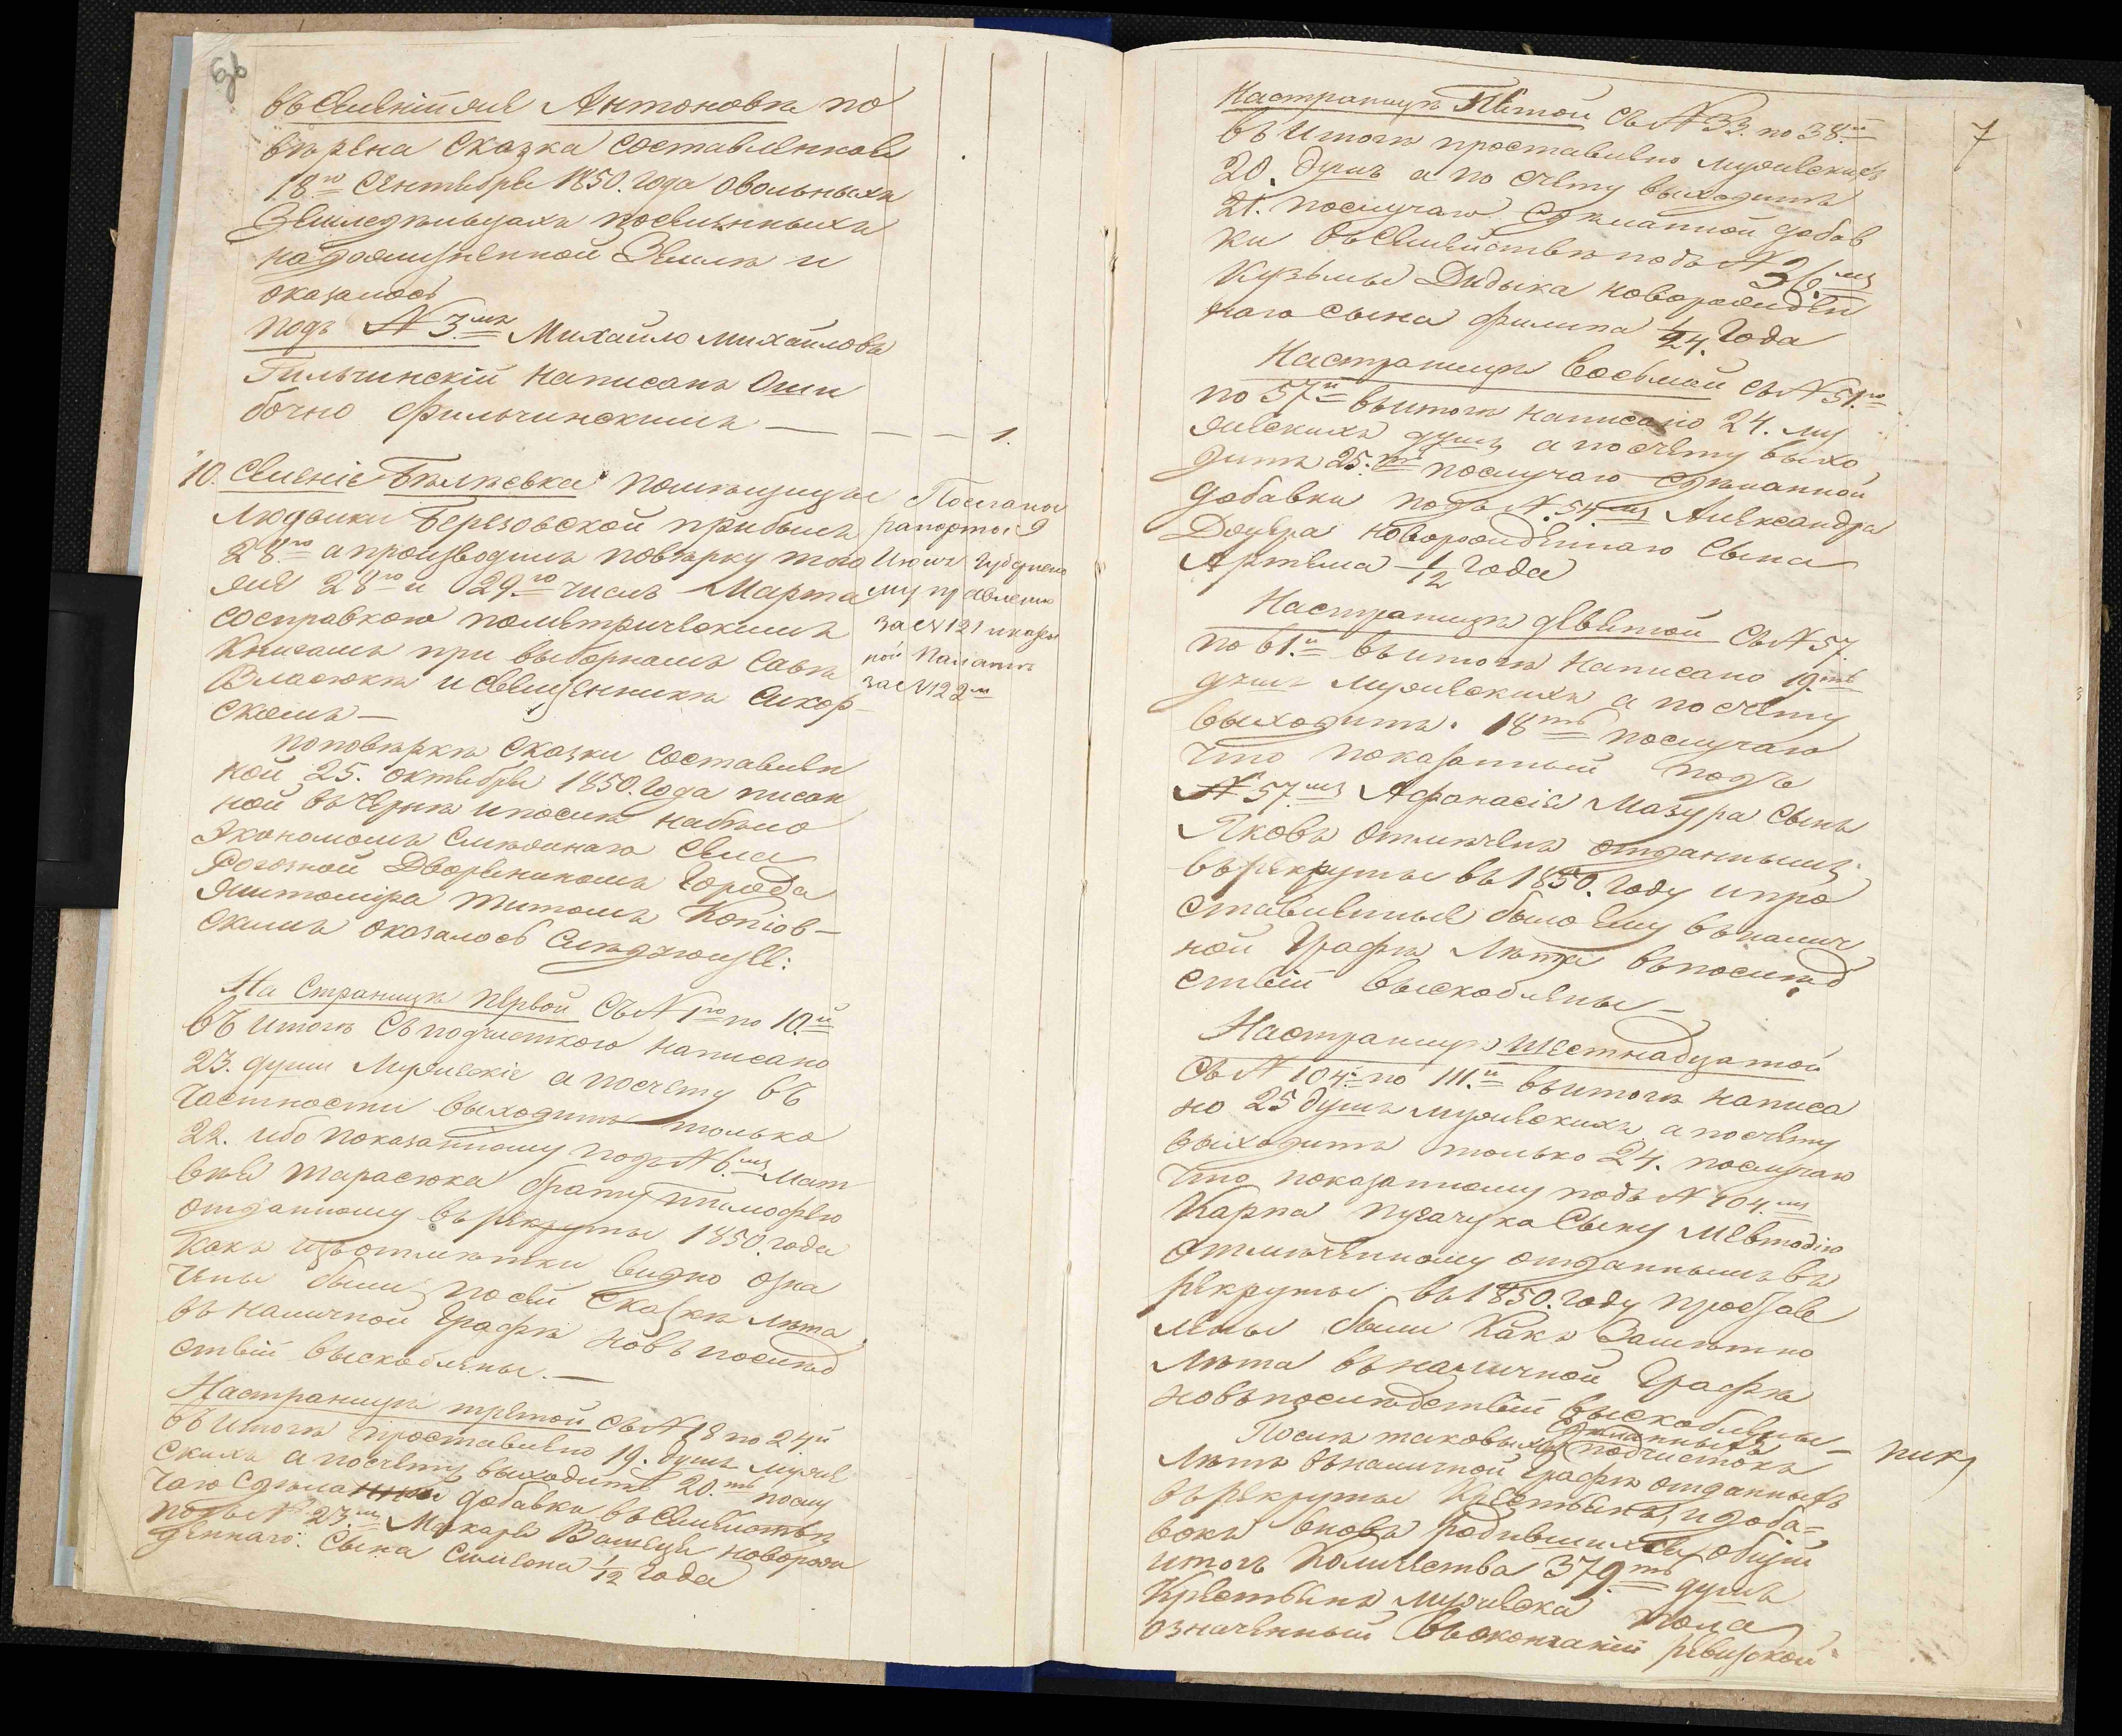 6об
въ Селеній же Антоновкѣ по
вѣрена Сказка составленная
18го Сентября 1850. года овольныхъ
Земледѣльцахъ поселенныхъ
на помѣщичей Землѣ и
оказалось
подъ N 3.мъ Михайло Михайловъ
Гильчинскій написанъ Оши
бочно Фильчинскимъ — — — 1.
10. Селеніе Бѣлѣвка помѣщицы
Людвики Березовской прибылъ
28го а производилъ повѣрку того
же 28го и 29.го числъ Марта
со справкою по метрическимъ
Книгамъ при выборномъ Савѣ
Власюкѣ и священникѣ Сикор-
скомъ —
Послано
рапортом 9
Июня Губернско
му правлению
за N 121 и казен
ной Палатѣ
за N 122м
по повѣркѣ Сказки составлен
ной 25. октября 1850. года писан
ной въ чернѣ и после набѣло
Экономомъ Смежнаго Села
Рогозной Дворяниномъ Города
Житоміра Титомъ Копіов-
скимъ оказалось Слѣдующее:
На Страницѣ первой Съ N 1го по 10.й
въ Итогѣ съ подчисткою написано
23. души Мужескіе а по счету въ
частности выходитъ только
22. ибо показанному подъ N 6.мъ Мат
вея Тарасюка брату Тимофею
отданному въ рекруты 1850. года
какъ изъ отмѣтки видно озна
чены были по сей Сказкѣ лѣта
въ наличной Графѣ но въ послѣд
ствій выскоблены. —
На страницѣ третой съ N 18 по 24.й
въ Итогѣ проставлено 19. душъ муже
скихъ а по счету выходитъ 20.ть по слу
чаю сдѣланной добавки въ Семействѣ
подъ N 23.мъ Макара новорож
деннаго Сына Симеона 1/12 года
7
На страницѣ Пятой Съ N 33. по 38.й
въ Итогѣ проставлено мужескихъ
20. душъ а по счету выходитъ
21. по случаю сдѣланной добав
ки въ Семействѣ подъ N 36.мъ
Кузьмы Дидыка новорожден
наго сына Филипа 1/24. Года
На страницѣ Восьмой съ N 51.го
по 57й въ итогѣ написано 24. му
жескихъ душъ а по счету выхо
дитъ 25.ть по случаю сдѣланной
добавки подъ N. 54.мъ Александра
новорожденнаго Сына
Артема 1/12 года
На страницѣ девятой Съ N 57.
по 61.й въ итогѣ написано 19.ть
душъ мужескихъ а по счету
выходитъ. 18ть по случаю
что показанный подъ
N 57.мъ Афанасія Мазура Сынъ
Яковъ отмѣченъ отданнымъ
въ рекруты въ 1850. году и про
ставленые было ему въ налич
ной Графѣ Лѣта въ послѣд
ствій выскоблены —
На страницѣ шестнадцатой
Съ N 104.й по 111.й въ итогѣ написа
но 25 душъ мужескихъ а по счету
выходитъ только 24. по случаю
что показанному подъ N 104.мъ
Карпа Пугачука Сыну Мевтодію
отмѣченному отданнымъ въ
рекруты въ 1850. году простав
лены были какъ Замѣтно
Лѣта въ наличной Графѣ
но въ послѣдствій выскоблены —
Послѣ таковыхъ сдѣланныхъ подчистокъ
Лѣтъ въ наличной Графѣ отданныхъ
въ рекруты Крестьянъ, и доба=
вокъ вновь родившихся, общій
итогъ Количества 379.ть душъ
Крестьянъ мужеска пола
означенный въ окончаній ревизской